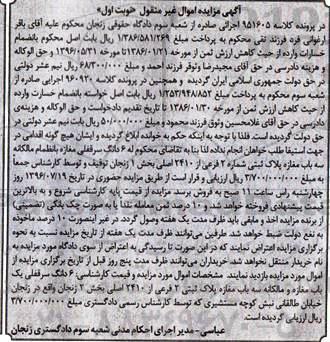 آگهی مزایده اموال غیر منقول «نوبت اول»
در پرونده کلاسه ۹۵۱۶۰۵ اجرائی صادره از شعبه سوم دادگاه حقوقی زنجان محکوم علیه آقای باقر
ارغوانی فرد فرزند تقی محکوم به پرداخت مبلغ ۱/۳۸۶/۵۸۱/۲۶۹ ریال بابت اصل محکوم بانضمام
خسارات وارده از حیث کاهش ارزش ثمن از مورخه ۱۳۸۶/۰۱/۲۱ تا مورخه ۱۳۹۶/۰۵/۳۱ و حق الوکاله
و هزینه دادرسی در حق آقای حمیدرضا وثوقر فرزند احمد و مبلغ ۶۸/۳۰۰/۰۰۰ ریال نیم عشر دولتی
در حق دولت جمهوری اسلامی ایران گردیده و همچنین در پرونده کلاسه ۹۶۰۹۳۰ اجرائی صادره از
شعبه سوم محکوم به پرداخت مبلغ ۱/۲۵۳/۹۴۸/۸۵۲ ریال بابت اصل محکوم بانضمام خسارات وارده
از حیث کاهش ارزش ثمن از مورخه ۱۳۸۶/۰۱/۳۰ تا تاریخ تقدیم دادخواست و حق الوکاله و هزینه‌ی
دادرسی در حق آقای غلامحسین وثوق فرزند محمود و مبلغ ۵۰/۰۰۰/۰۰۰ ریال بابت نیم عشر دولتی در
حق دولت گردیده است. فلذا با توجه به اینکه حکم به خوانده ابلاغ گردیده و ایشان هیچ گونه اقدامی در
جهت استیفا طلب خواهان انجام نداده لذا بنا به تقاضای محکوم له ۶ دانگ سرقفلی بانضمام مالکانه
سه باب مغازه پلاک ثبتی شماره ۲ فرعی از ۲۴۱۰ اصلی بخش ۱ زنجان توقیف و توسط کارشناس جمعاً
به مبلغ ۳/۷۰۰/۰۰۰/۰۰۰ ریال ارزیابی و قرار است از طریق مزایده حضوری در تاریخ ۱۳۹۶/۰۷/۱۹ روز
چهارشنبه راس ساعت ۱۱ صبح به فروش برسد. مزایده از قیمت پایه کارشناس شروع و به بالاترین
قیمت پیشنهادی فروخته خواهد شد. و ۱۰ درصد ثمن معامله نقداً یا به صورت چک بانکی (تضمینی)
از برنده مزایده اخذ و مابقی باید ظرف مدت یک هفته وصول گردد. در غیر اینصورت ۱۰ درصد ماخوذه
به نفع دولت ضبط خواهد شد. طرفین می‌توانند ظرف مدت یک هفته از تاریخ
برگزاری مزایده اعتراض نمایند که در این صورت تا رسیدگی به اعتراض از سوی دادگاه مورد مزایده به
نام خریدار منتقل نخواهد شد. خریداران می‌توانند ظرف مدت پنج روز قبل از تاریخ برگزاری مزایده از
مورد مزایده بازدید نمایند. مشخصات اموال مورد مزایده و قیمت کارشناسی: ۶ دانگ سرقفلی یک
باب مغازه و مالکانه سه باب مغازه پلاک ثبتی ۲ فرعی از ۲۴۱۰ اصلی بخش ۲ زنجان واقع در زنجان
خیابان طالقانی نبش کوچه مستشیری که توسط کارشناس رسمی دادگستری مبلغ ۳/۷۰۰/۰۰۰/۰۰۰
ریال ارزیابی گردیده است.
عباسی - مدیر اجرای احکام مدنی شعبه سوم دادگستری زنجان